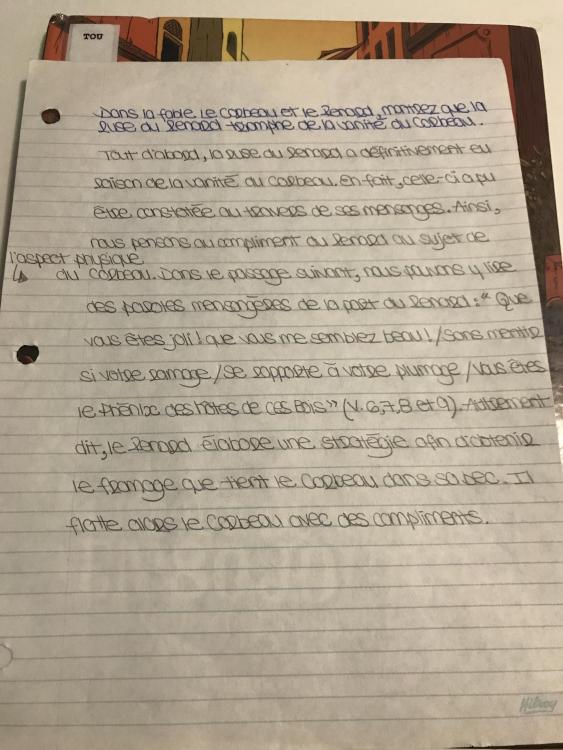 TOU
Dans la fable Le Corbeau et le Renard, montrez que la
ruse du Renard triomphe de la vanité du Corbeau.
Tout d'abord, la ruse du Renard a définitivement eu
raison de la vanité du Corbeau. En fait, celle-ci a pu
être constatée au travers de ses mensonges. Ainsi,
nous pensons au compliment du Renard au sujet de
l'aspect physique
↳ du Corbeau. Dans le passage suivant, nous pouvons y lire
des paroles mensongères de la part du Renard : « Que
vous êtes joli ! que vous me semblez beau ! / Sans mentir
si votre ramage / Se rapporte à votre plumage / Vous êtes
le Phénix des hôtes de ces Bois » (V. 6, 7, 8 et 9). Autrement
dit, le Renard élabore une stratégie afin d'obtenir
le fromage que tient le Corbeau dans sa bec. Il
flatte alors le Corbeau avec des compliments.
Hilroy